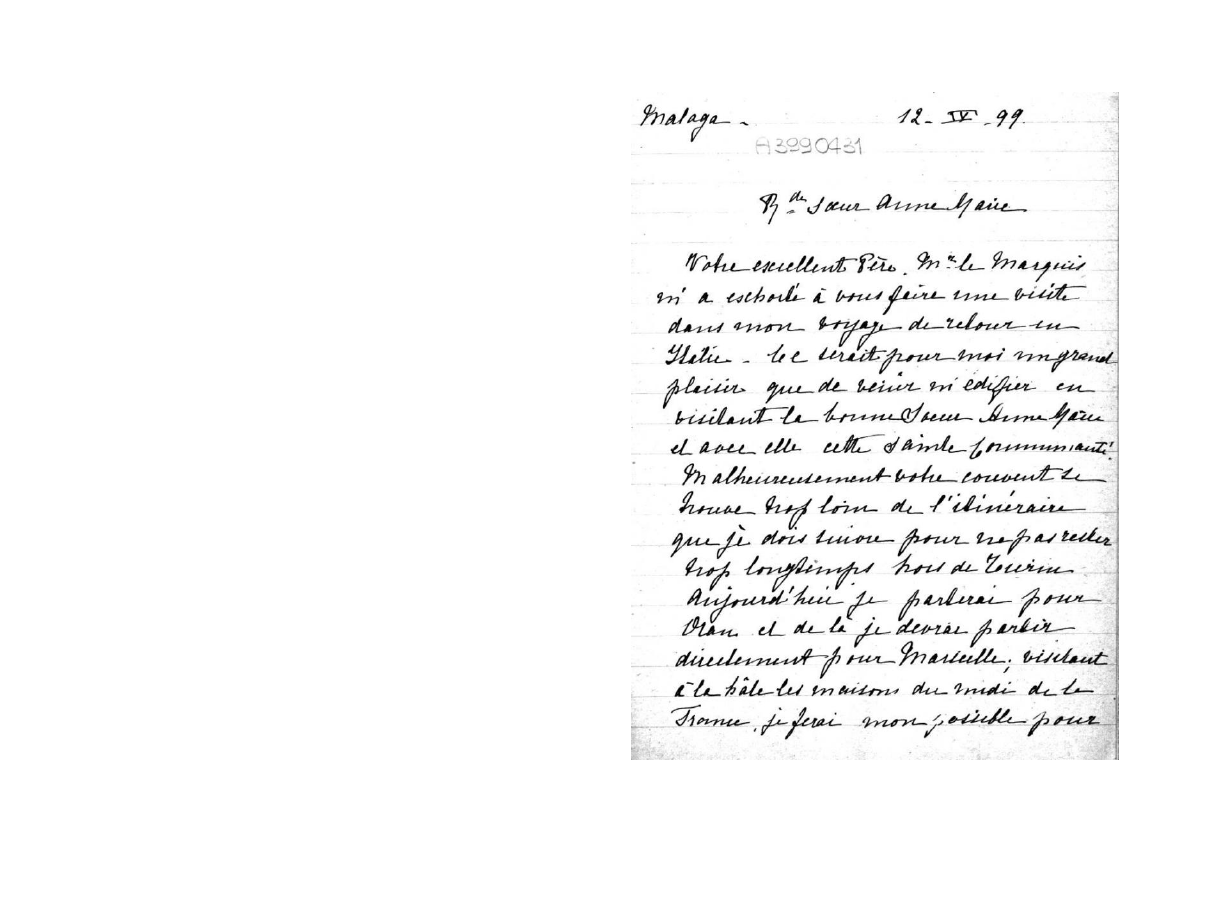 Malaga - 12 - IV - 99.
A3990431
R.de Sœur Anne Marie
Votre excellent Père, Mr. le Marquis
m'a exhorté à vous faire une visite
dans mon voyage de retour en
Italie - Ce serait pour moi un grand
plaisir que de venir m'édifier en
visitant la bonne Soeur Anne Marie
et avec elle cette Sainte Communauté.
Malheureusement votre couvent se
trouve trop loin de l'itinéraire
que je dois suivre pour ne pas rester
trop longtemps hors de Tourin
Aujourd'hui je partirai pour
Oran et de là je devrai partir
directement pour Marseille; visitant
à la hâte les maisons du midi de la
France, je ferai mon possible pour